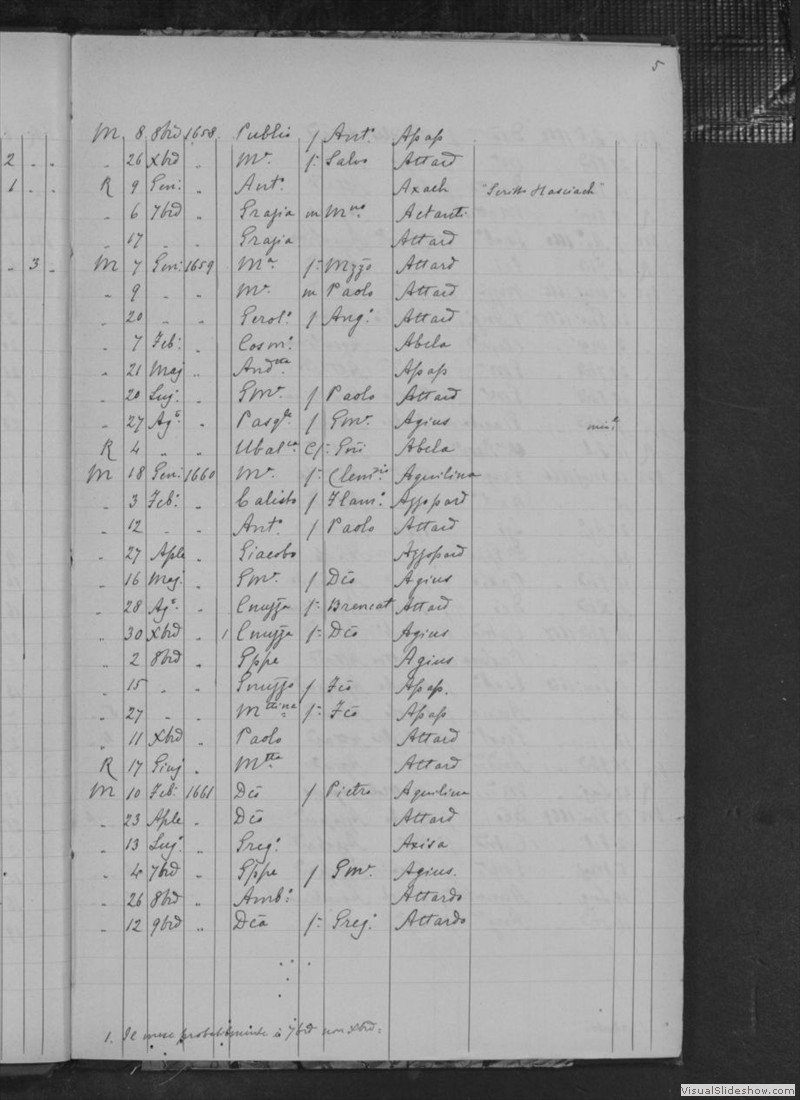 5
M 8 8brd 1658 Publio f Ant.° Apap
2 " " " 26 Xbrd " M.r f: Salvo Attard
1 " " R 9 Gen: " Ant.° Axach "Scritto Hasciach"
" 6 7brd " Grazia m Attard
" 17 " " Grazia Attard
" 3 " M 7 Gen: 1659 M.a f: Mzzo Attard
" 9 " " M.r m Paolo Attard
" 20 " " Gerol.° f Ang.° Attard
" 7 Feb: " Cosm.° Abela
" 21 Maj " Apap
" 20 Luj: " Gm.r f Paolo Attard
" 27 Ag.° " Pasq.le f Gm.r Agius
R 4 " " Abela
M 18 Gen: 1660 M.r f: Aquilina
" 3 Feb: " Calisto f Flam.° Azzopard
" 12 " " Ant.° f Paolo Attard
" 27 Aple " Giacobo Azzopard
" 16 Maj: " Gm.r f Dco Agius
" 28 Ag.° " Cnuzza f: Brancat Attard
" 30 Xbrd " 1 Cnuzza f: Dco Agius
" 2 8brd " Gppe Agius
" 15 " " f Fco Apap.
" 27 " " f: Fco Apap
" 11 Xbrd " Paolo Attard
R 17 Giuj " Attard
M 10 Feb: 1661 Dco f Pietro Aquilina
" 23 Aple " Dco Attard
" 13 Luj: " Greg.° Axisa
" 4 7brd " Gppe f Gm.r Agius.
" 26 8brd " Amb.° Attardo
" 12 9brd " Dca f: Greg.° Attardo
1. Il mese probabilmente è 7brd non Xbrd=
VisualSlideshow.com